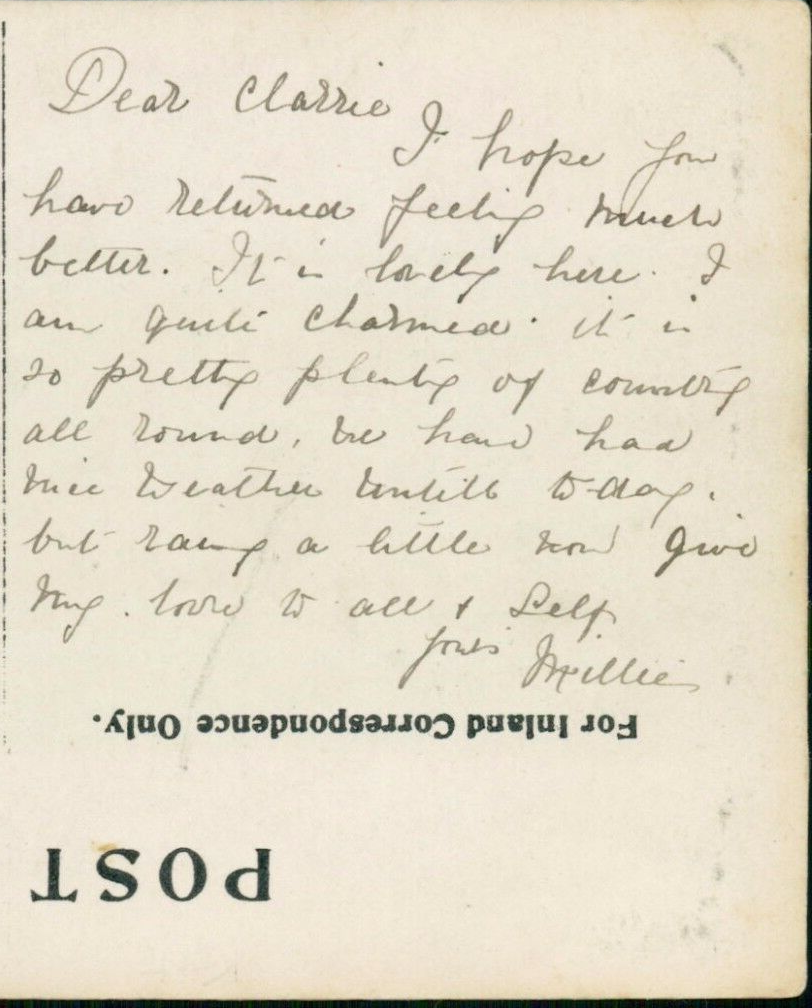 Dear Clarrie
I hope you
have returned feeling much
better. It is lovely here. I
am quite charmed. it is
so pretty plenty of country
all round, we have had
nice weather untill to-day.
but raing a little now give
my love to all & Self
yours Millie
For Inland Correspondence Only.
POST